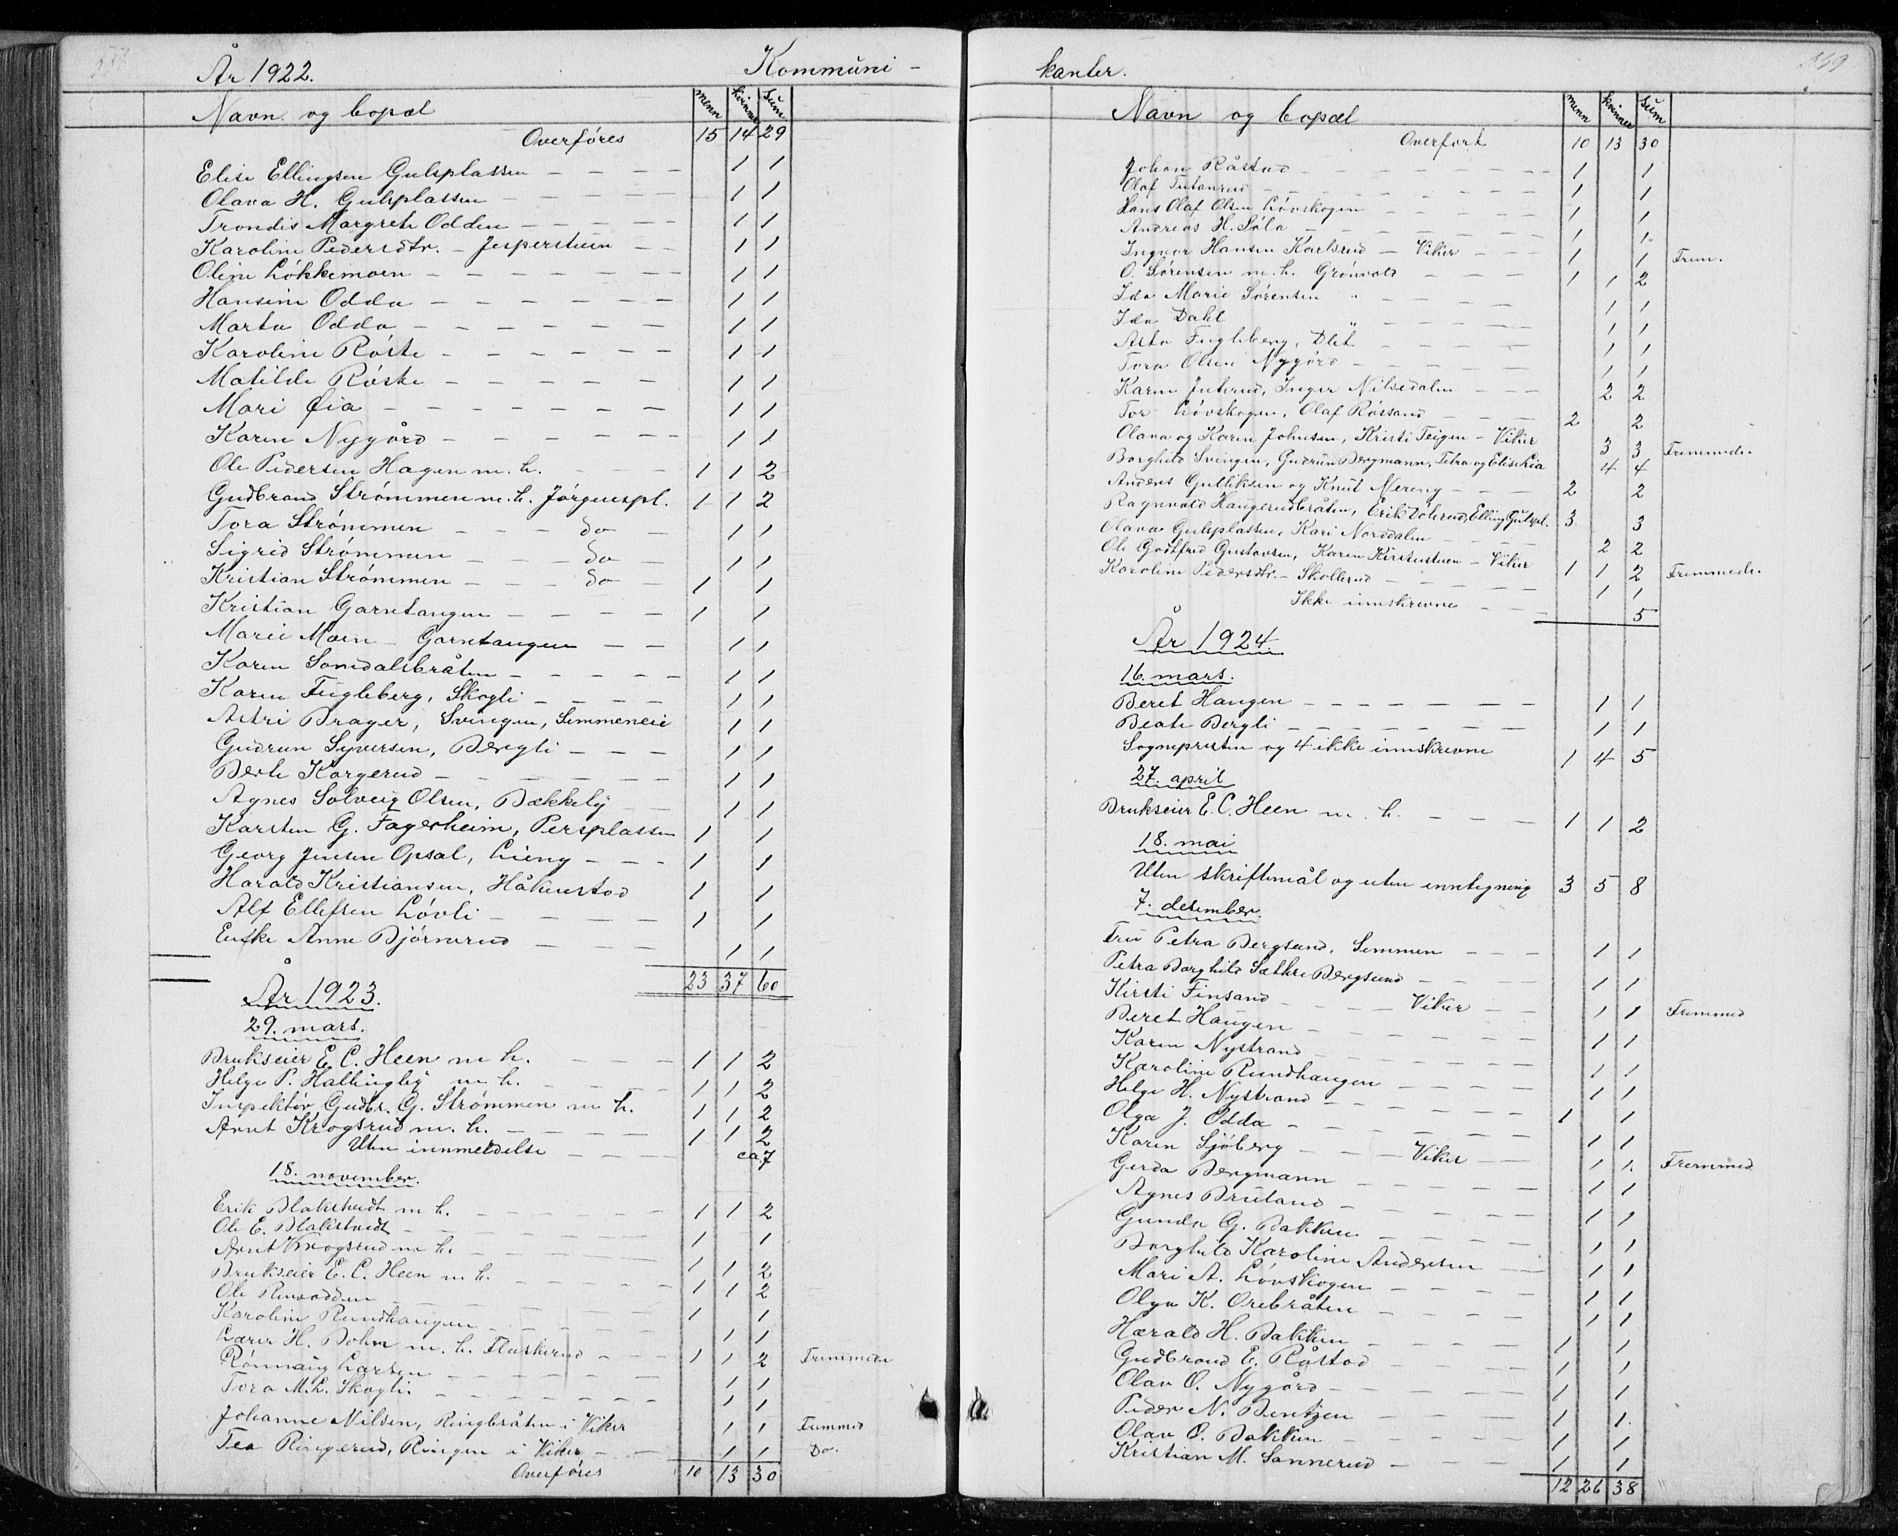 År 1922. Kommuni-
Navn og bopæl menn kvinner sum
Overføres 15 14 29
Elise Ellingsen Gulsplassen 1 1
Olava H. Gulsplassen 1 1
Trondis Margrete Odden 1 1
Karoline Pedersdtr. - Jespersteen 1 1
Oline Løkkemoen 1 1
Hansine Odda 1 1
Marta Odda 1 1
Karoline Røste 1 1
Matilde Røste 1 1
Mari Øia 1 1
Karen Nygård 1 1
Ole Pedersen Hagen m. h. 1 1 2
Gudbrand Strømmen m. h. Jørgenspl. 1 1 2
Tora Strømmen do 1 1
Sigrid Strømmen do 1 1
Kristian Strømmen do 1 1
Kristian Garntangen 1 1
Marie Moen - Garntangen 1 1
Karen Somdalsbråten 1 1
Karen Fugleberg, Skogli 1 1
Astri Brager, Svingen, Semmeneie 1 1
Gudrun Syversen, Bergli 1 1
Berte Korgerud 1 1
Agnes Solveig Olsen, Bækkely 1 1
Karsten G. Fagerheim, Persplassen 1 1
Georg Jensen Opsal, Lieng 1 1
Harald Kristiansen, Håkenstad 1 1
Alf Ellefsen Løvli 1 1
Enke Anne Bjørnerud 1 1
23 37 60
År 1923.
29. mars.
Brukseier E. C. Heen m h. 1 1 2
Helge P. Hallingby m. h. 1 1 2
Inspektør Gudbr. G. Strømmen m h. 1 1 2
Arnt Krogsrud m. h. 1 1 2
Uten innmeldelse ca 7
18. november.
Erik Blakstvedt m h. 1 1 2
Ole E. Blakstvedt 1 1
Arnt Krogsrud m h. 1 1 2
Brukseier E. C. Heen m h. 1 1 2
Ole 1 1
Karoline Rundhaugen 1 1
H. Bohm m. h. Flaskerud 1 1 2 Fremmede
Rønnaug Larsen 1 1
Tora M. L. Skogli. 1 1
Johanne Nilsen, Ringbråten i Viker 1 1 Fremmed
Tea Ringerud, Ringen i Viker 1 1 Do.
Overføres 10 13 30
159
kanter.
Navn og bopæl menn kvinner sum
Overført 10 13 30
Johan Råstad 1 1
Olaf Tutanrud 1 1
Hans Olaf Olsen Løvskogen 1 1
Andreas H. Søla 1 1
Ingvar Hansen Karlsrud - Viker 1 1 Frem.
O. Sørensen m. h. Grønvold 1 1 2
Ida Marie Sørensen " 1 1
Ida Dahl " 1 1
Asta Fugleberg, 1 1
Tora Olsen Nygård 1 1
Karen Juterud, Inger Nilsedalen 2 2
Tor Løvskogen, Olaf Røssand 2 2
Olava og Karen Johnsen, Kristi Teigen - Viker 3 3 Fremmede.
Borghild Svingen, Gudrun Bergmann, Petra og Elise Lia 4 4
Anders Gulliksen og Knut Mereng 2 2
Ragnvald Haugerudbråten, Erik Tolerud, Elling Gulspl. 3 3
Olava Gulsplassen, Kari Norddalen 2 2
Ole Godtfred Gustavsen, Karen Kirstusteen - Viker 1 1 2 Fremmede.
Karoline Pedersdtr. - Skollerud 1 1
Ikke innskrevne 5
År 1924.
16. mars.
Beret Haugen 1 1
Beate Bergli 1 1
Sognepresten og 4 ikke innskrevne 1 4 5
27. april
Brukseier E. C. Heen m. h. 1 1 2
18. mai
Uten skriftemål og uten inntegning 3 5 8
7. desember.
Fru Petra Bergsund, Semmen 1 1
Petra Borghild Sæthre Bergsund 1 1
Kirsti Finsand Viker 1 1 Fremmed
Beret Haugen 1 1
Karen Nystrand 1 1
Karoline Rundhaugen 1 1
Helge H. Nystrand 1 1
Olga J. Odda 1 1
Karen Sjøberg Viker 1 1 Fremmed
Gerda Bergmann 1 1
Agnes Bruland 1 1
Gunda G. Bakken 1 1
Borghild Karoline Andersen 1 1
Mari A. Løvskogen 1 1
Olga K. Orebråten 1 1
Harald H. Bakken 1 1
Gudbrand E. Råstad 1 1
Olav O. Nygård 1 1
Peder N. Bentzen 1 1
Olav O. Bakken 1 1
Kristian M. Sannerud 1 1
12 26 38